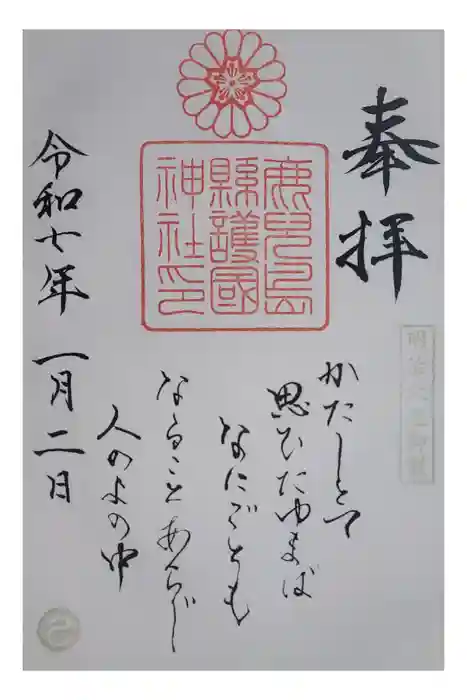 奉拝
明治天皇御製
鹿兒島
縣護國
神社印
かたしとて
思ひたゆまば
なにごとも
なることあらじ
人のよの中
令和七年一月二日